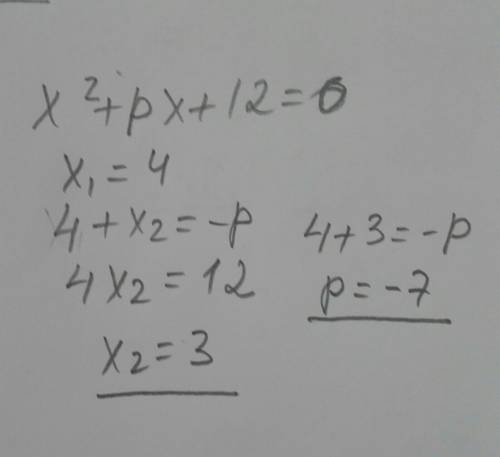 x² + px + 12 = 0
x₁ = 4
4 + x₂ = -p
4x₂ = 12
x₂ = 3
4 + 3 = -p
p = -7